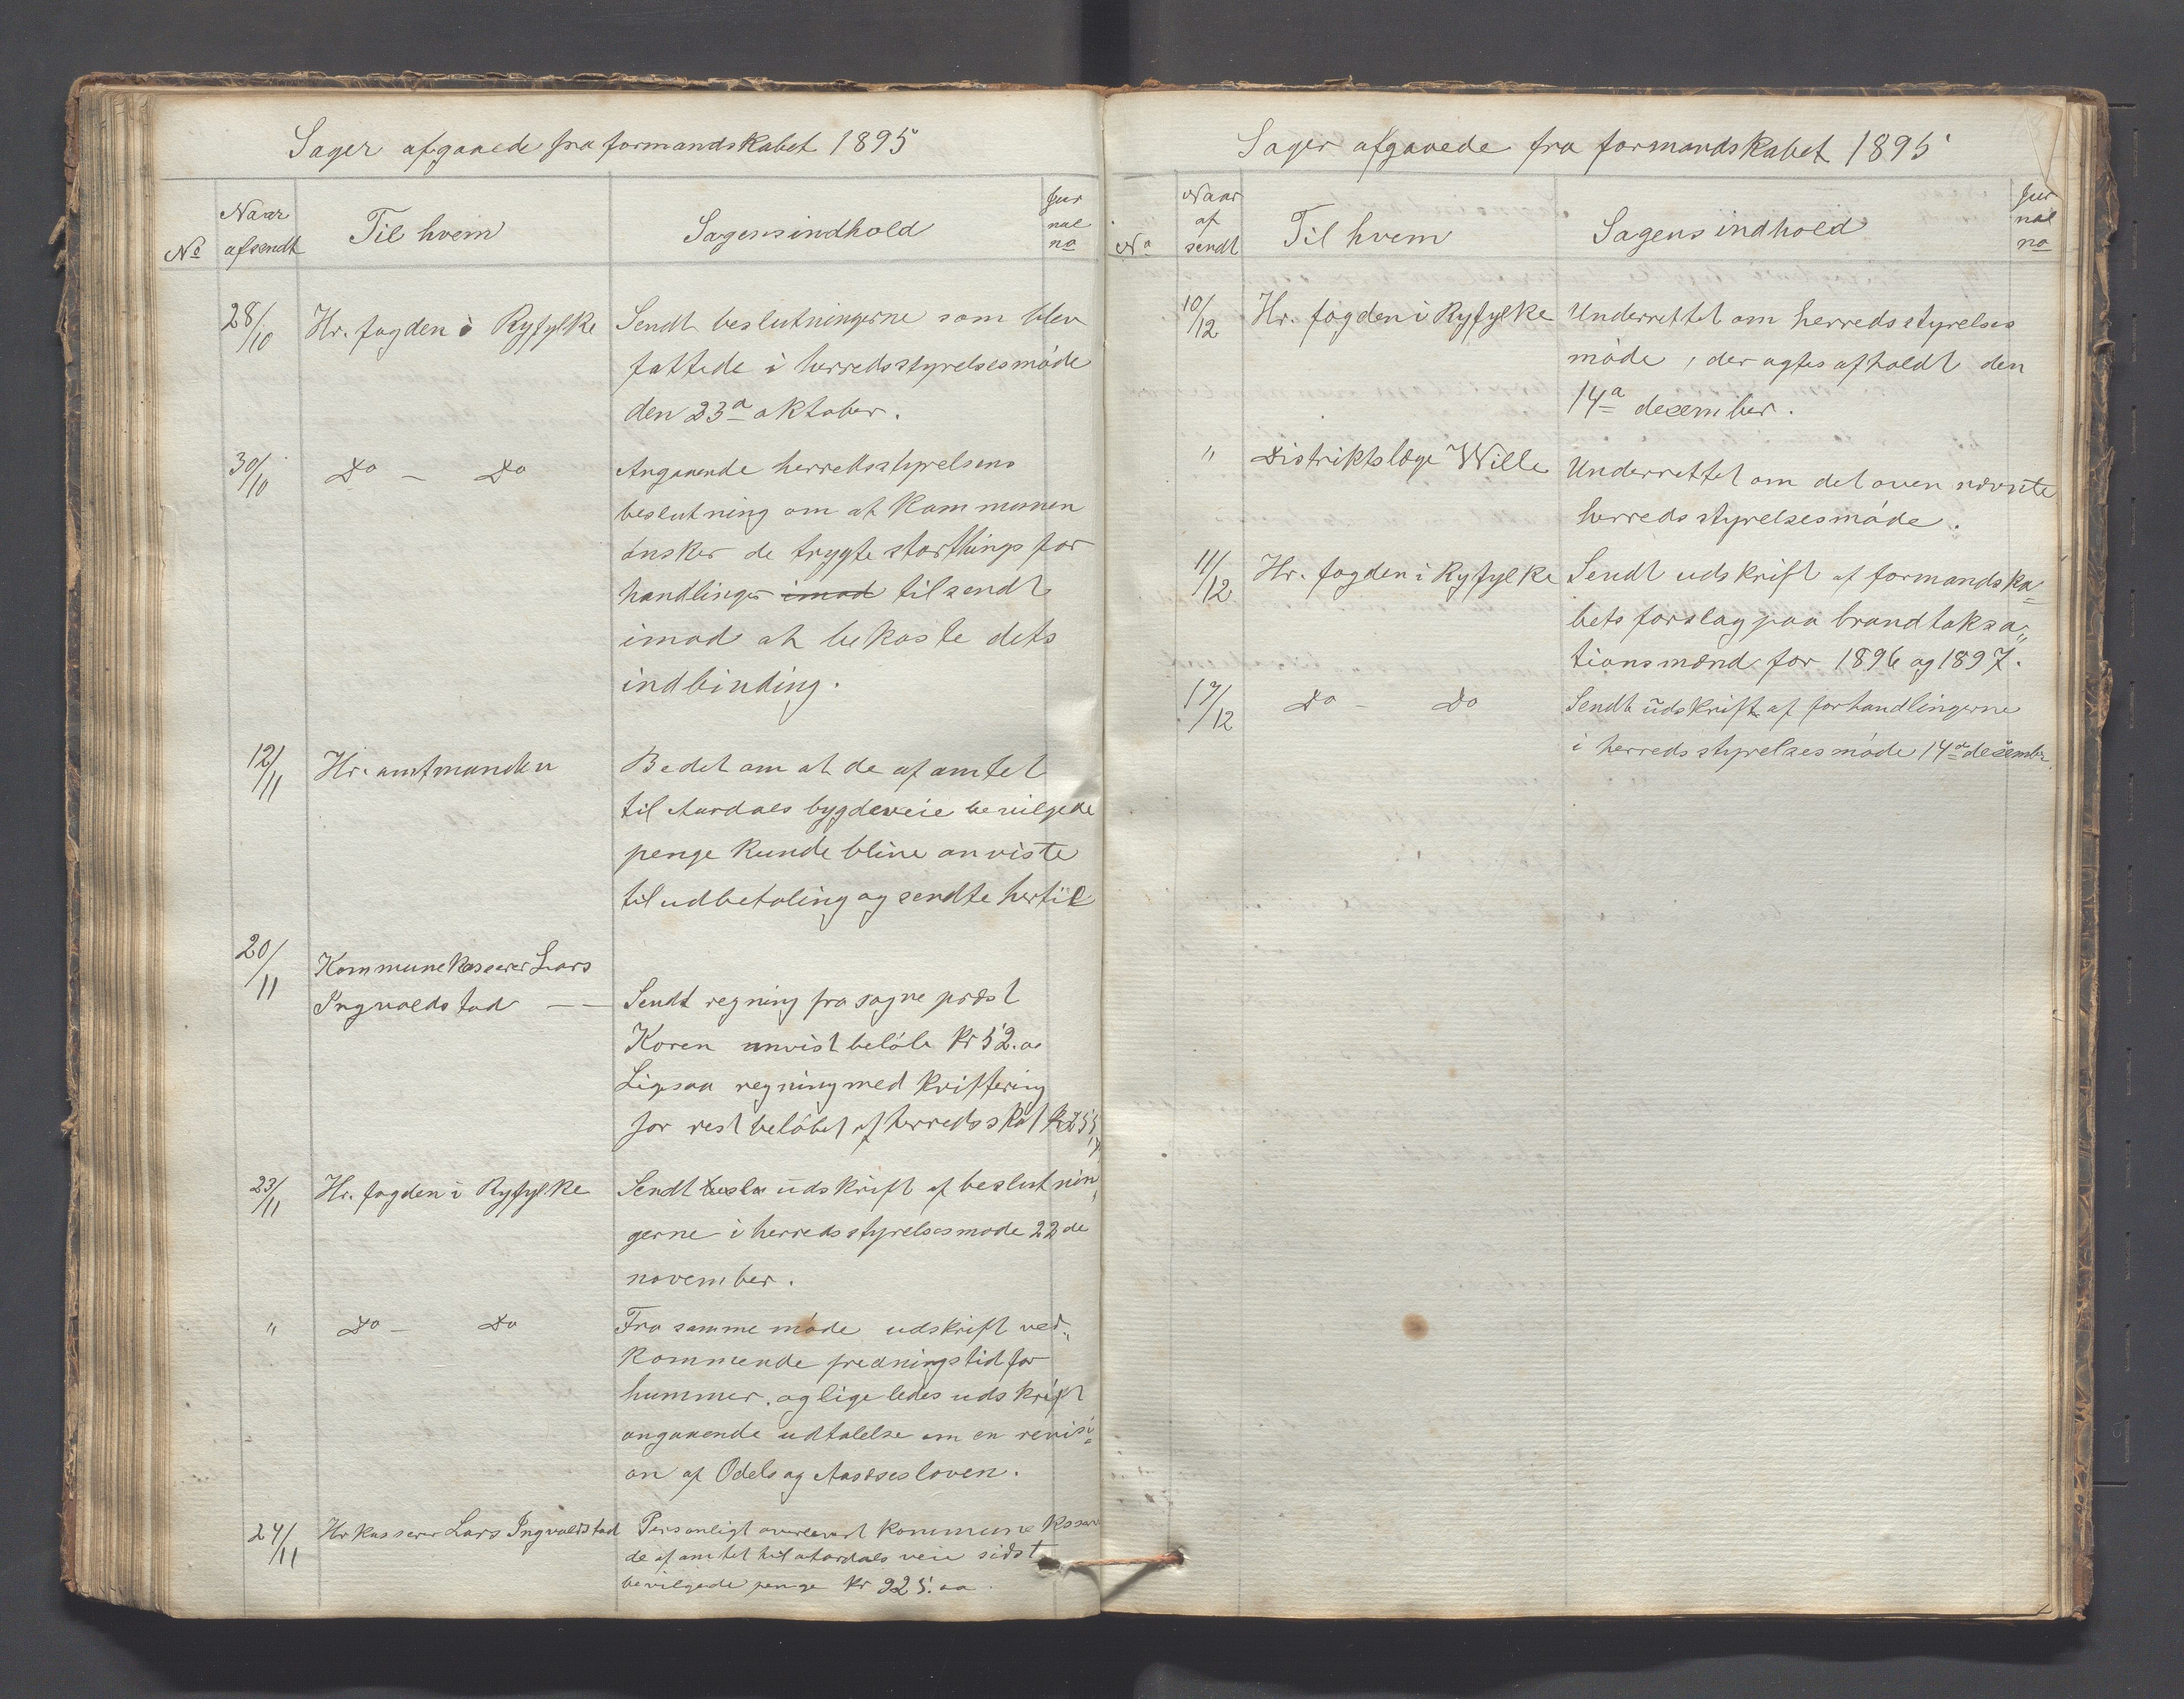 Sager afgaaede fra formandskabet 1895
No
Naar
afsendt
Til hvem
Sagens indhold
Jur
nal
no
28/10 Hr. fogden i Ryfylke Sendt beslutningerne som blev
fattede i herredsstyrelsesmöde
den 23a oktober.
30/10 Do — Do Angaaende herredsstyrelsens
beslutning om at kommunen
önsker de trygte storthings for
handlinger imod tilsendt
imod at bekoste dets
indbinding.
12/11 Hr. amtmanden Bedet om at de af amtet
til Aardals bygdeveie bevilgede
penge kunde blive anviste
til udbetaling og sendte hertil
20/11 Kommunekasserer Lars
Ingvaldstad — — Sendt regning fra sognepræst
Koren anvist belöb kr 52.00
Ligsaa regning med kvittering
for restbelöbet af herredsskat kr
23/11 Hr. fogden i Ryfylke Sendt beslu udskrift af beslutnin„
gerne i herredsstyrelsesmöde 22de
november.
" Do — Do Fra samme möde udskrift ved„
kommende fredningstid for
hummer, og ligeledes udskrift
angaaende udtalelse om en revisi=
on af Odels og Aasædesloven.
24/11 Hr kasserer Lars Ingvaldstad Personligt overlevert kommunekasser
de af amtet til Aardals veie sidst
bevilgede penge kr 925.00
Sager afgaaede fra formandskabet 1895
No
Naar
af
sendt
Til hvem
Sagens indhold
Jur
nal
no
10/12 Hr. fogden i Ryfylke Underrettet om herredsstyrelses
möde, der agtes afholdt den
14a desember.
" Distriktslæge Wille Underrettet om det oven nævnte
herredsstyrelsesmöde.
11/12 Hr. fogden i Ryfylke Sendt udskrift af formandska=
bets forslag paa brandtaksa„
tionsmænd for 1896 og 1897.
17/12 Do — Do Sendt udskrift af forhandlingerne
i herredsstyrelsesmöde 14a desember.